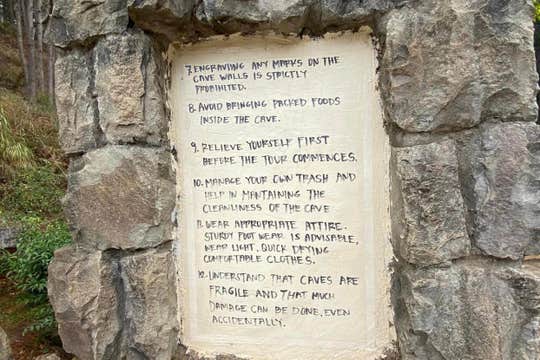 7. ENGRAVING ANY MARKS ON THE
CAVE WALLS IS STRICTLY
PROHIBITED.
8. AVOID BRINGING PACKED FOODS
INSIDE THE CAVE.
9. RELIEVE YOURSELF FIRST
BEFORE THE TOUR COMMENCES.
10. MANAGE YOUR OWN TRASH AND
HELP IN MAINTAINING THE
CLEANLINESS OF THE CAVE
11. WEAR APPROPRIATE ATTIRE.
STURDY FOOT WEAR IS ADVISABLE,
WEAR LIGHT, QUICK DRYING
COMFORTABLE CLOTHES.
12. UNDERSTAND THAT CAVES ARE
FRAGILE AND THAT MUCH
DAMAGE CAN BE DONE, EVEN
ACCIDENTALLY.